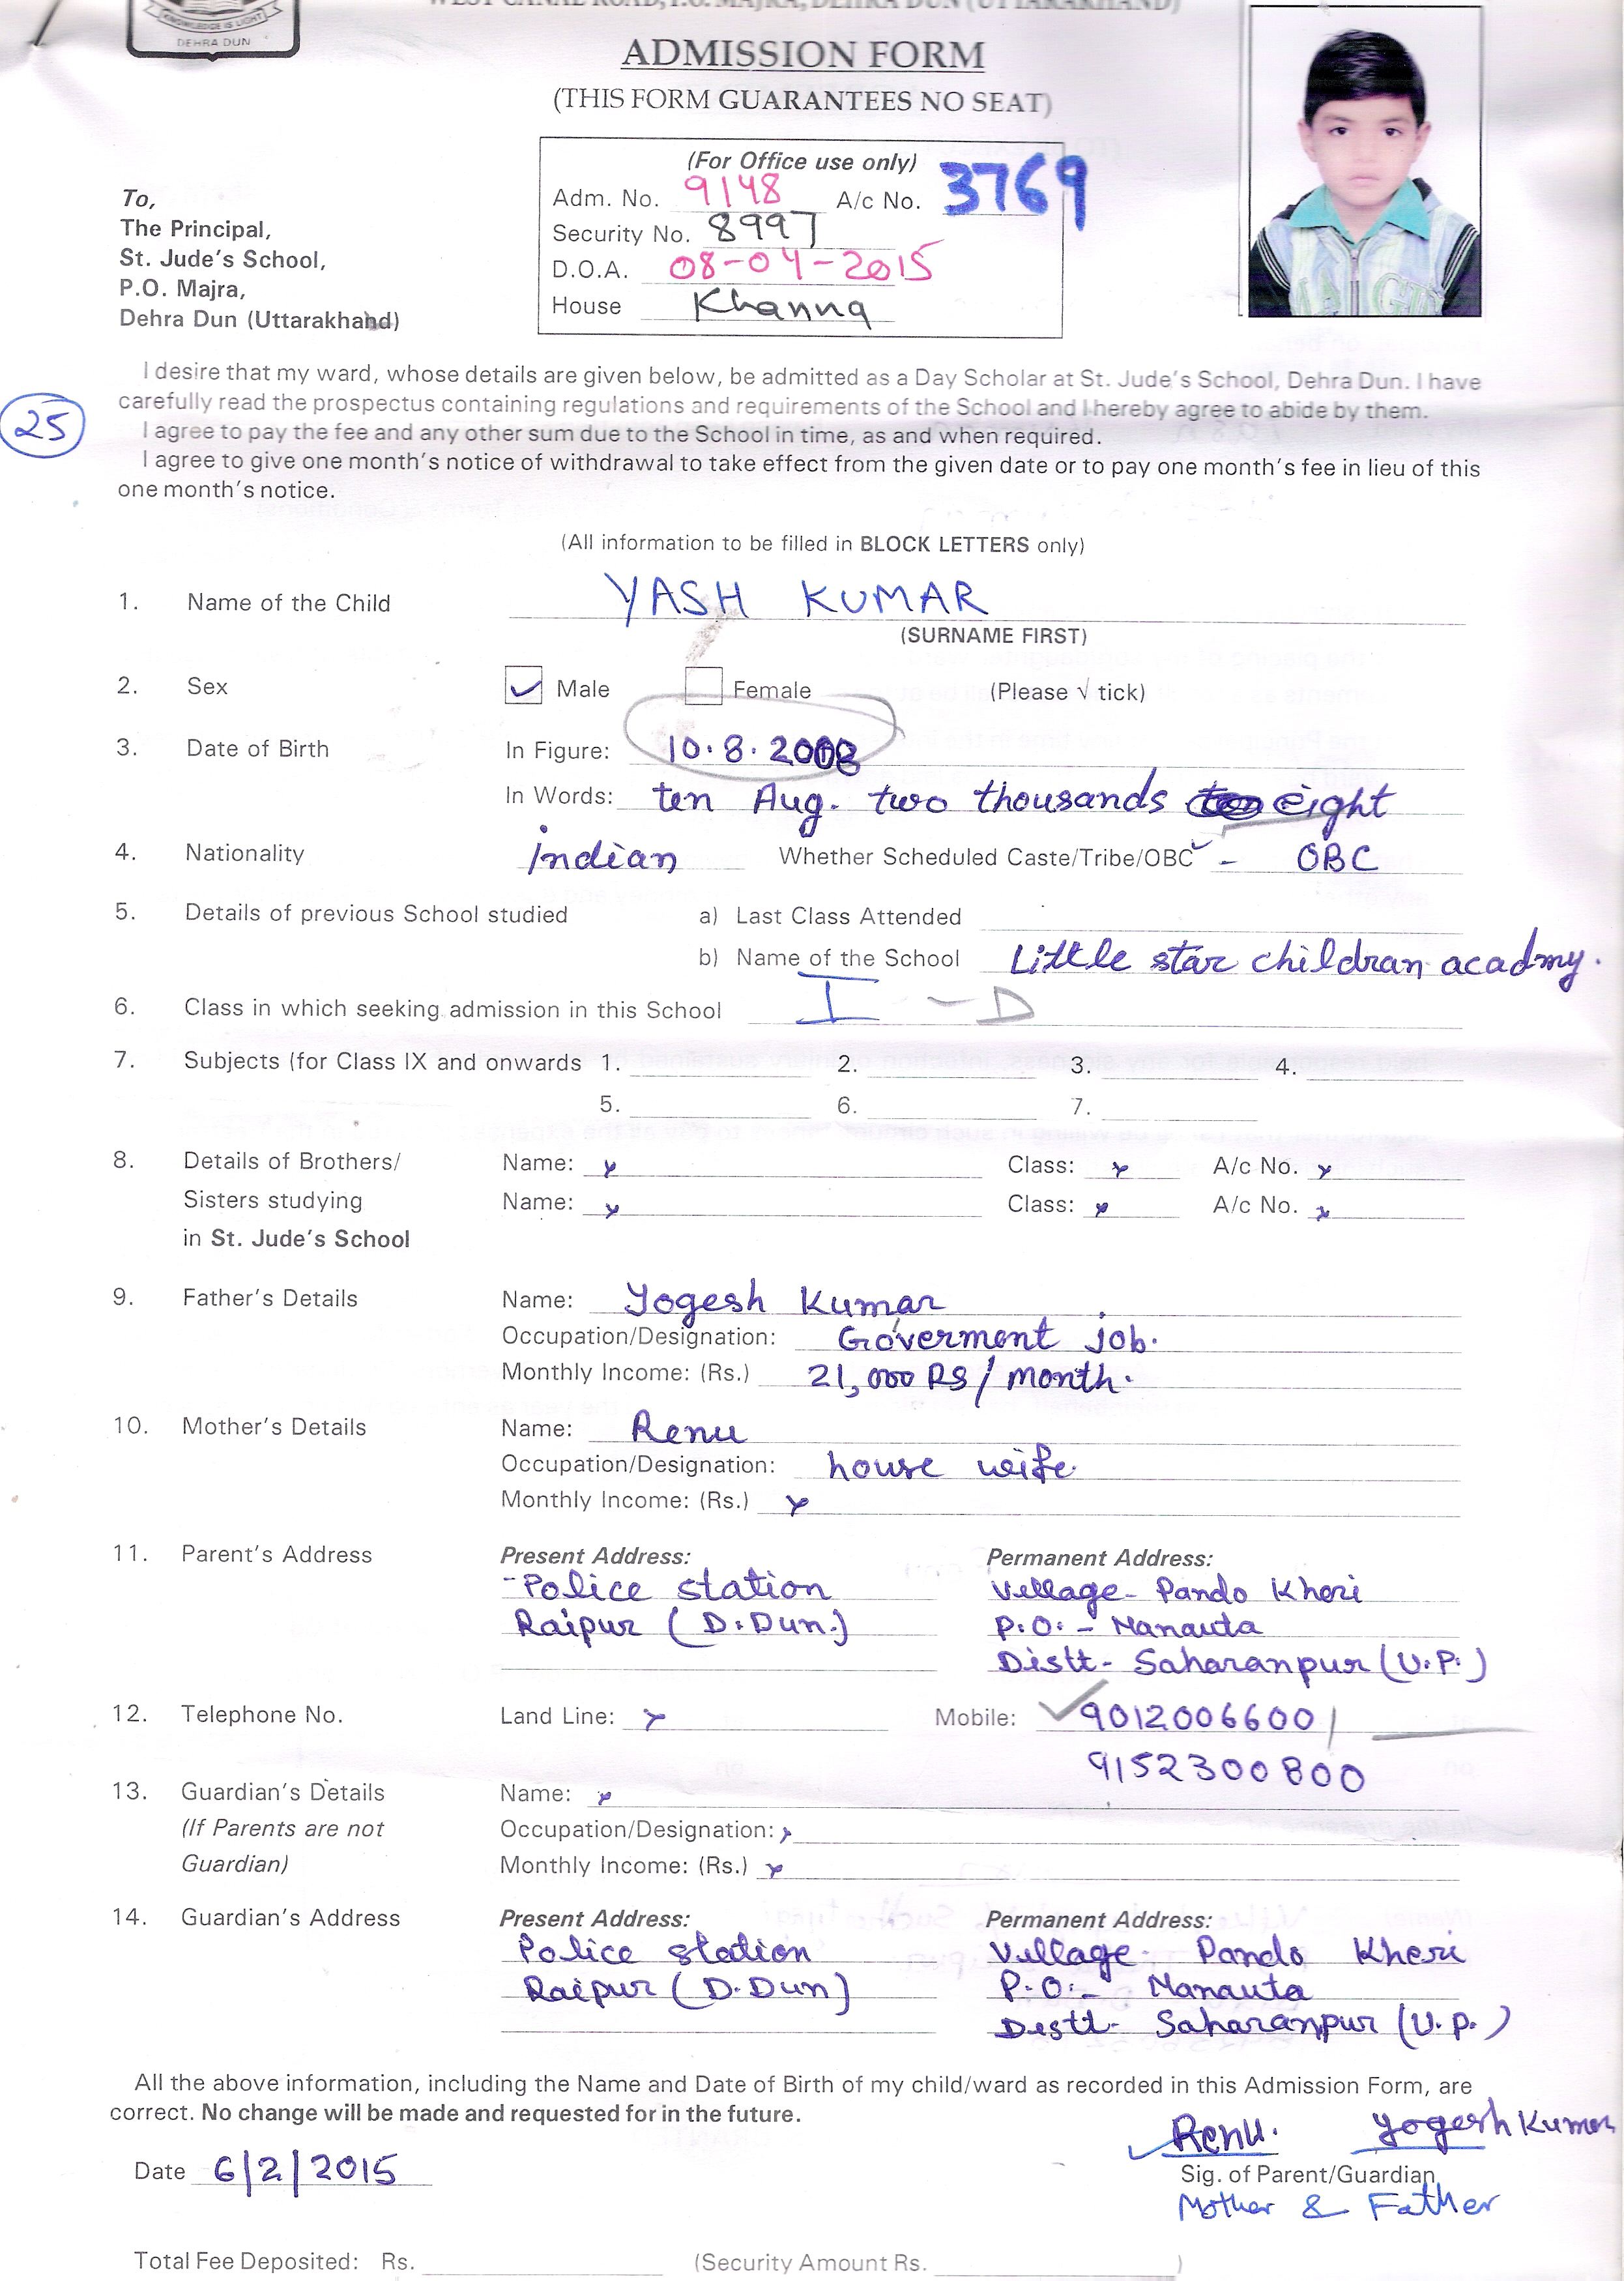 WEST CANAL ROAD, P.O. MAJRA, DEHRA DUN (UTTARAKHAND)
KNOWLEDGE IS LIGHT
DEHRA DUN
ADMISSION FORM
(THIS FORM GUARANTEES NO SEAT)
(For Office use only)
Adm. No. 9148 A/c No. 3769
Security No. 8997
D.O.A. 08-04-2015
House Khanna
To,
The Principal,
St. Jude's School,
P.O. Majra,
Dehra Dun (Uttarakhand)
I desire that my ward, whose details are given below, be admitted as a Day Scholar at St. Jude's School, Dehra Dun. I have
carefully read the prospectus containing regulations and requirements of the School and I hereby agree to abide by them.
25
I agree to pay the fee and any other sum due to the School in time, as and when required.
I agree to give one month's notice of withdrawal to take effect from the given date or to pay one month's fee in lieu of this
one month's notice.
(All information to be filled in BLOCK LETTERS only)
1. Name of the Child YASH KUMAR
(SURNAME FIRST)
2. Sex ✓ Male Female (Please √ tick)
3. Date of Birth In Figure: 10.8.2008
In Words: ten Aug. two thousands eight
4. Nationality indian Whether Scheduled Caste/Tribe/OBC ✓ - OBC
5. Details of previous School studied a) Last Class Attended
b) Name of the School Little star childran acadmy.
6. Class in which seeking admission in this School I - D
7. Subjects (for Class IX and onwards 1. 2. 3. 4.
5. 6. 7.
8. Details of Brothers/ Name: x Class: x A/c No. x
Sisters studying Name: x Class: x A/c No. x
in St. Jude's School
9. Father's Details Name: Yogesh Kumar
Occupation/Designation: Goverment job.
Monthly Income: (Rs.) 21,000 RS/month.
10. Mother's Details Name: Renu
Occupation/Designation: house wife.
Monthly Income: (Rs.) x
11. Parent's Address Present Address: Permanent Address:
-Police station Village- Pando Kheri
Raipur (D.Dun.) P.O:- Nanauta
Distt- Saharanpur (U.P.)
12. Telephone No. Land Line: x Mobile: ✓ 9012006600/
9152300800
13. Guardian's Details Name: x
(If Parents are not Occupation/Designation: x
Guardian) Monthly Income: (Rs.) x
14. Guardian's Address Present Address: Permanent Address:
Police station Village- Pando Kheri
Raipur (D.Dun) P.O:- Nanauta
Distt- Saharanpur (U.P.)
All the above information, including the Name and Date of Birth of my child/ward as recorded in this Admission Form, are
correct. No change will be made and requested for in the future.
Renu. Yogesh Kumar
Date 6/2/2015 Sig. of Parent/Guardian
Mother & Father
Total Fee Deposited: Rs. (Security Amount Rs. )